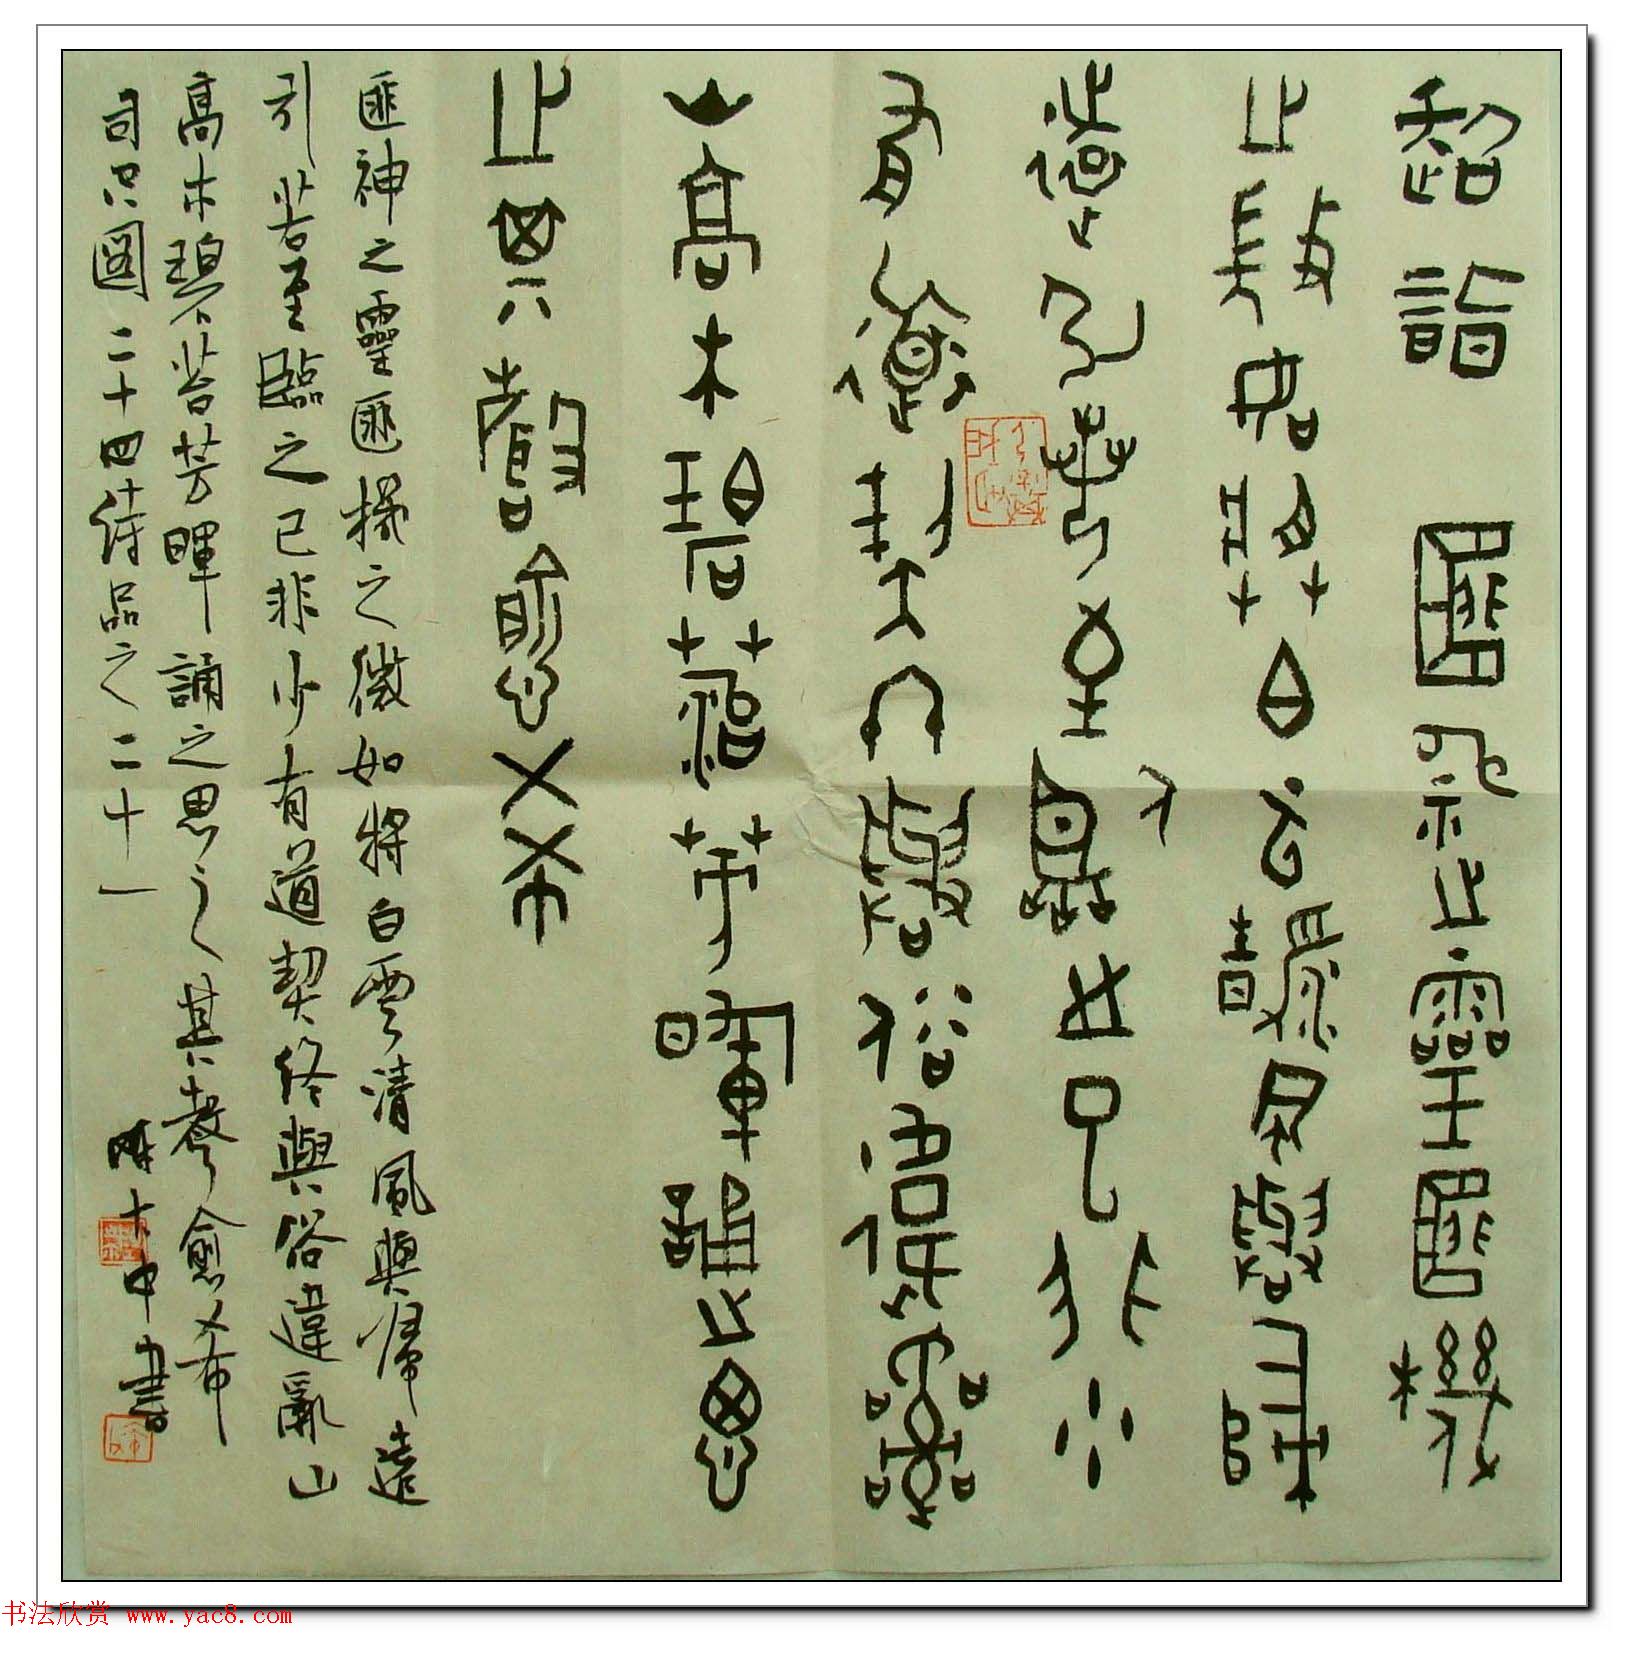 超詣 匪神之靈匪機
之微如將白云清風與歸
遠引若至臨之已非少
有道契終與俗違亂
山高木碧苔芳暉誦之思
之其聲愈希
匪神之靈匪機之微如將白雲清風與歸遠
引若至臨之已非少有道契終與俗違亂山
高木碧苔芳暉誦之思之其聲愈希
司空圖二十四詩品之二十一
中書
书法欣赏 www.yac8.com